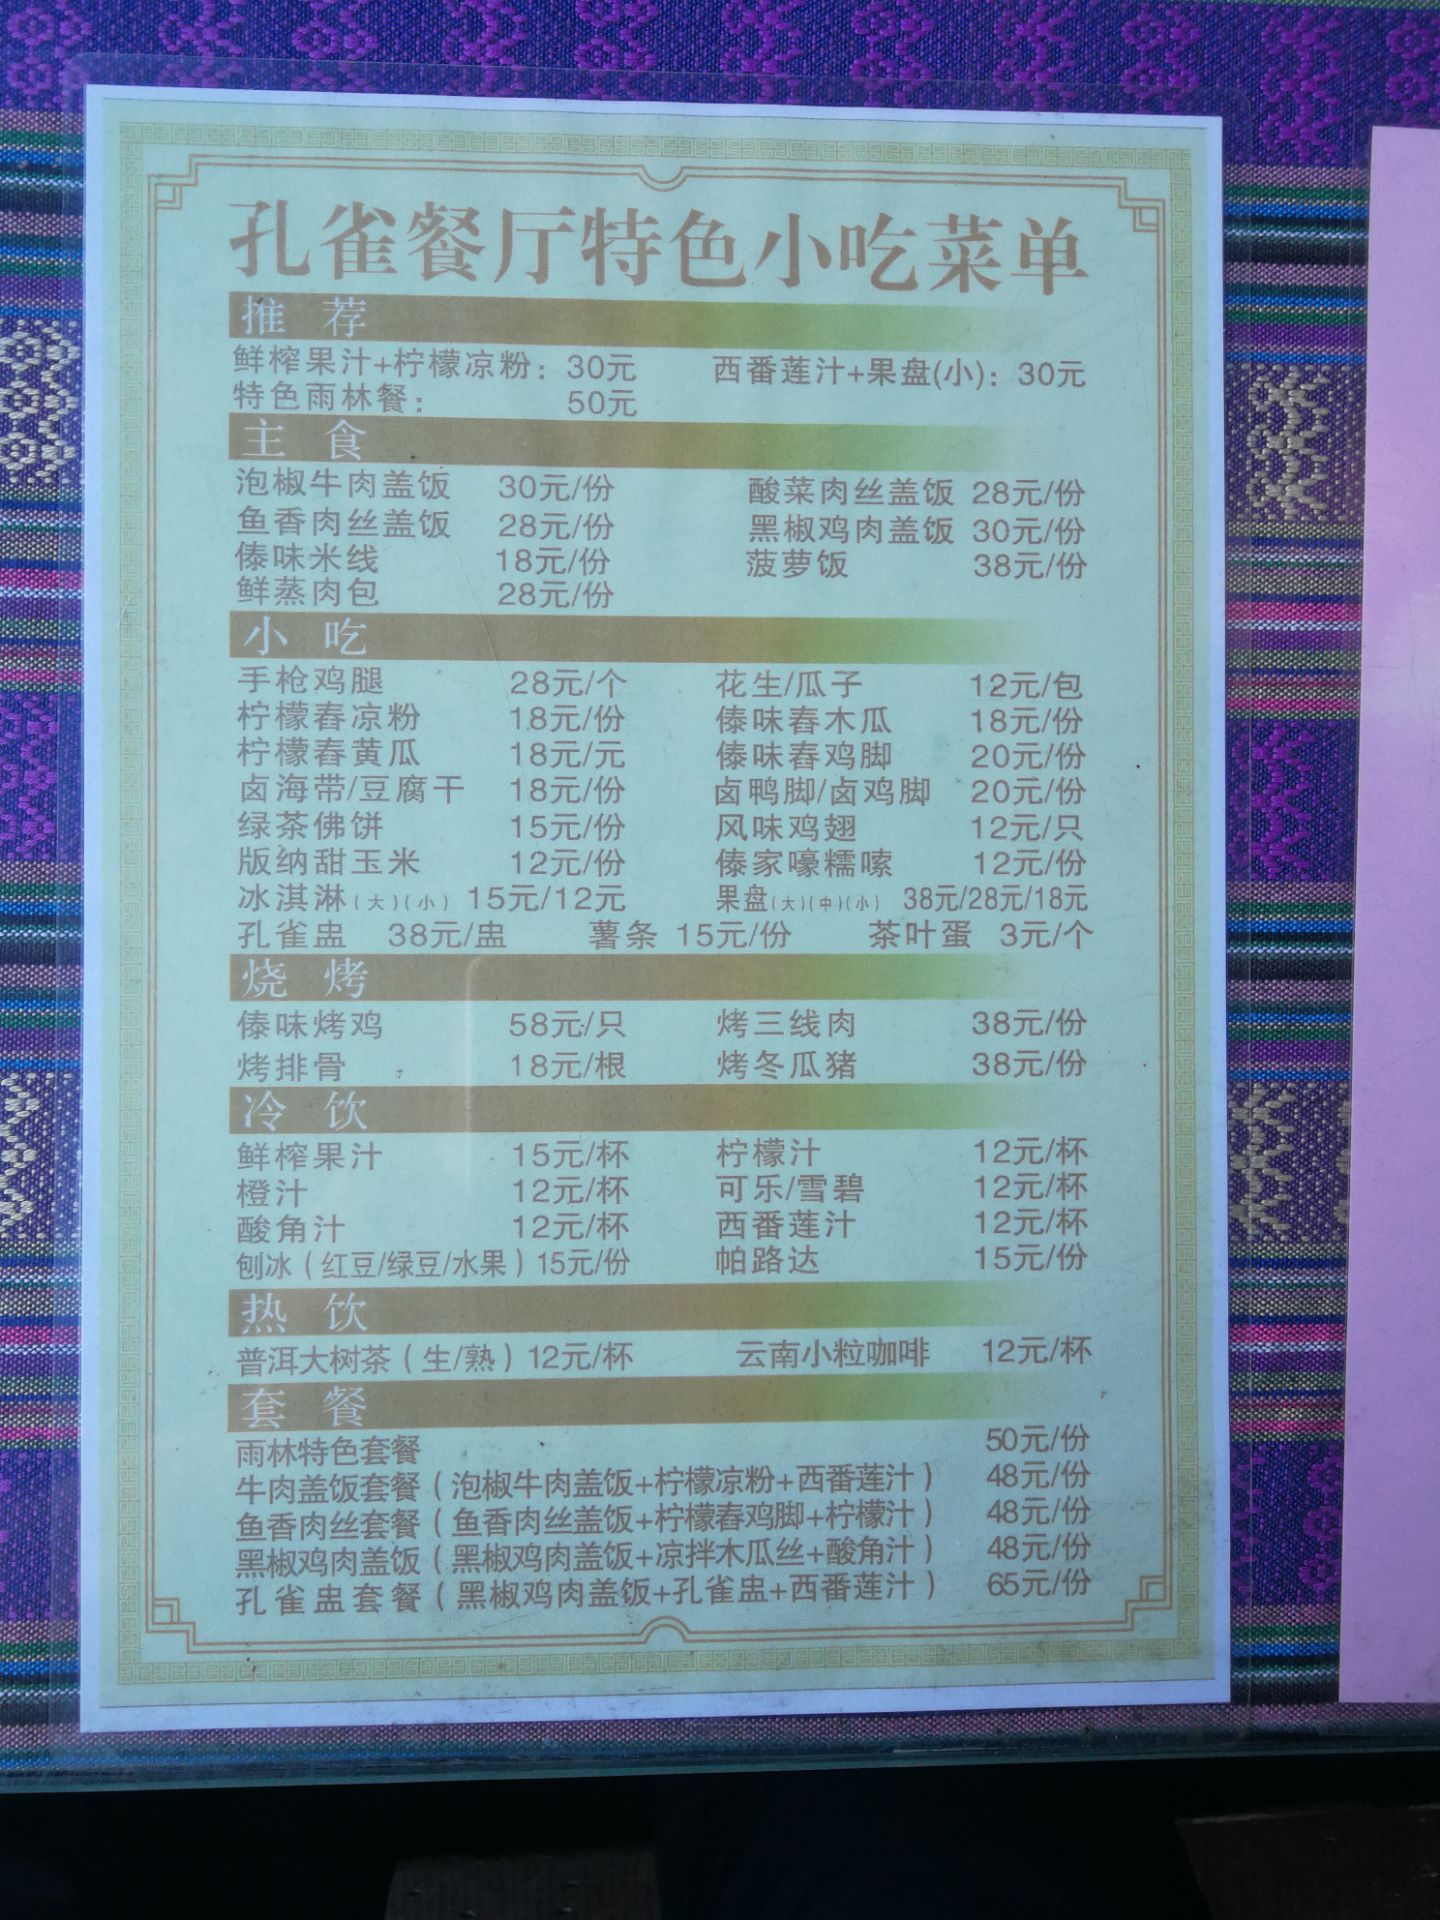 孔雀餐厅特色小吃菜单
推 荐
鲜榨果汁+柠檬凉粉：30元 西番莲汁+果盘(小)：30元
特色雨林餐： 50元
主 食
泡椒牛肉盖饭 30元/份 酸菜肉丝盖饭 28元/份
鱼香肉丝盖饭 28元/份 黑椒鸡肉盖饭 30元/份
傣味米线 18元/份 菠萝饭 38元/份
鲜蒸肉包 28元/份
小 吃
手枪鸡腿 28元/个 花生/瓜子 12元/包
柠檬舂凉粉 18元/份 傣味舂木瓜 18元/份
柠檬舂黄瓜 18元/元 傣味舂鸡脚 20元/份
卤海带/豆腐干 18元/份 卤鸭脚/卤鸡脚 20元/份
绿茶佛饼 15元/份 风味鸡翅 12元/只
版纳甜玉米 12元/份 傣家嚎糯嗦 12元/份
冰淇淋(大)(小) 15元/12元 果盘(大)(中)(小) 38元/28元/18元
孔雀盅 38元/盅 薯条 15元/份 茶叶蛋 3元/个
烧 烤
傣味烤鸡 58元/只 烤三线肉 38元/份
烤排骨 18元/根 烤冬瓜猪 38元/份
冷 饮
鲜榨果汁 15元/杯 柠檬汁 12元/杯
橙汁 12元/杯 可乐/雪碧 12元/杯
酸角汁 12元/杯 西番莲汁 12元/杯
刨冰（红豆/绿豆/水果）15元/份 帕路达 15元/份
热 饮
普洱大树茶（生/熟）12元/杯 云南小粒咖啡 12元/杯
套 餐
雨林特色套餐 50元/份
牛肉盖饭套餐（泡椒牛肉盖饭+柠檬凉粉+西番莲汁） 48元/份
鱼香肉丝套餐（鱼香肉丝盖饭+柠檬舂鸡脚+柠檬汁） 48元/份
黑椒鸡肉盖饭（黑椒鸡肉盖饭+凉拌木瓜丝+酸角汁） 48元/份
孔雀盅套餐（黑椒鸡肉盖饭+孔雀盅+西番莲汁） 65元/份